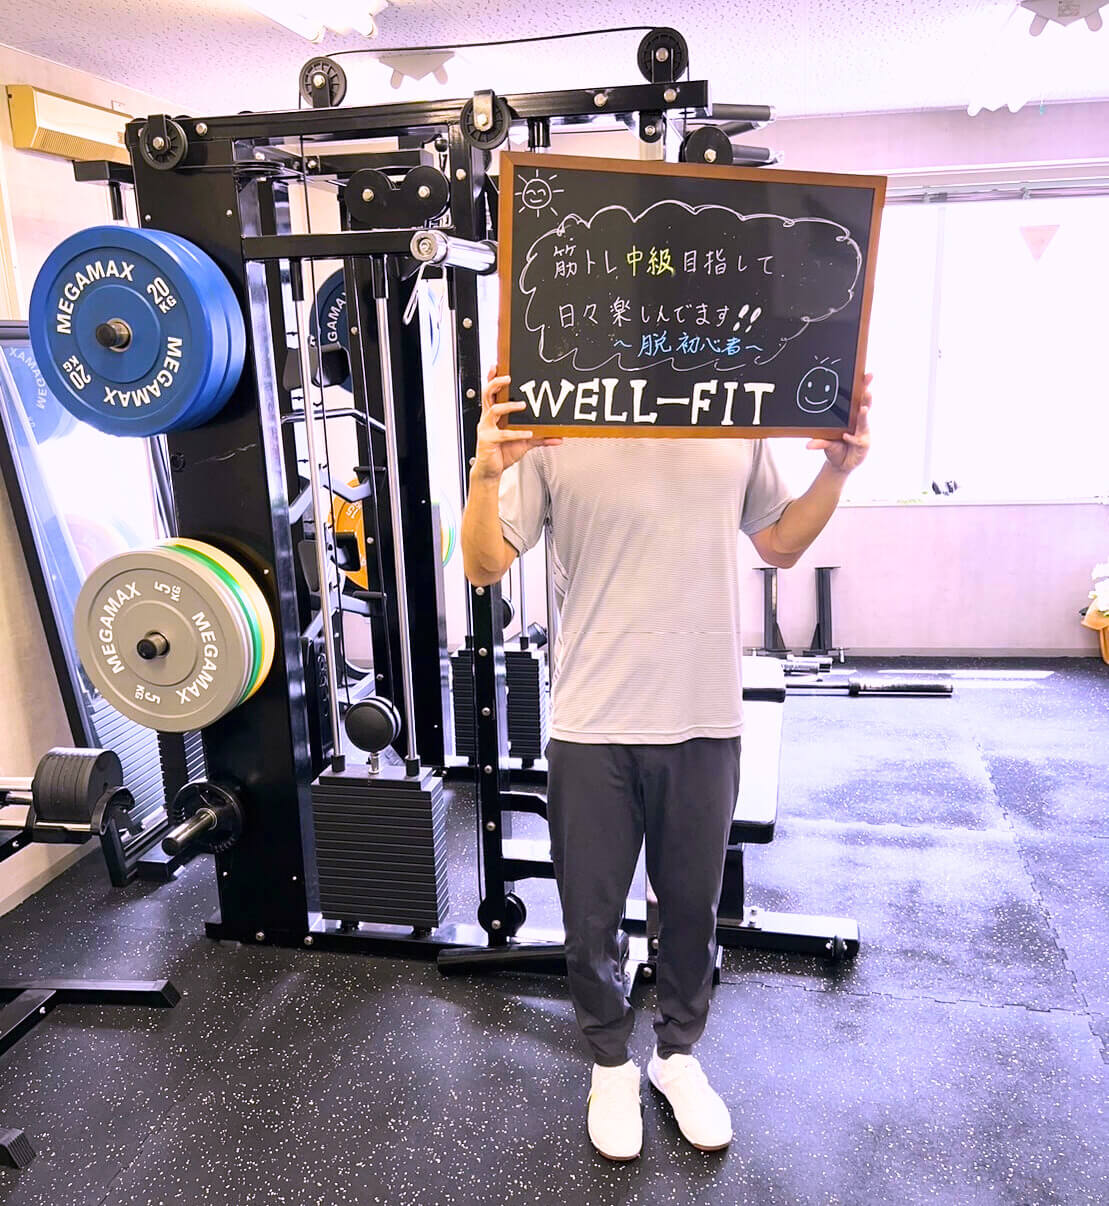 筋トレ中級目指して
日々楽しんでます!!
～脱初心者～
WELL-FIT
MEGAMAX
20
KG
MEGAMAX
20
KG
MEGAMAX
5
KG
MEGAMAX
5
KG